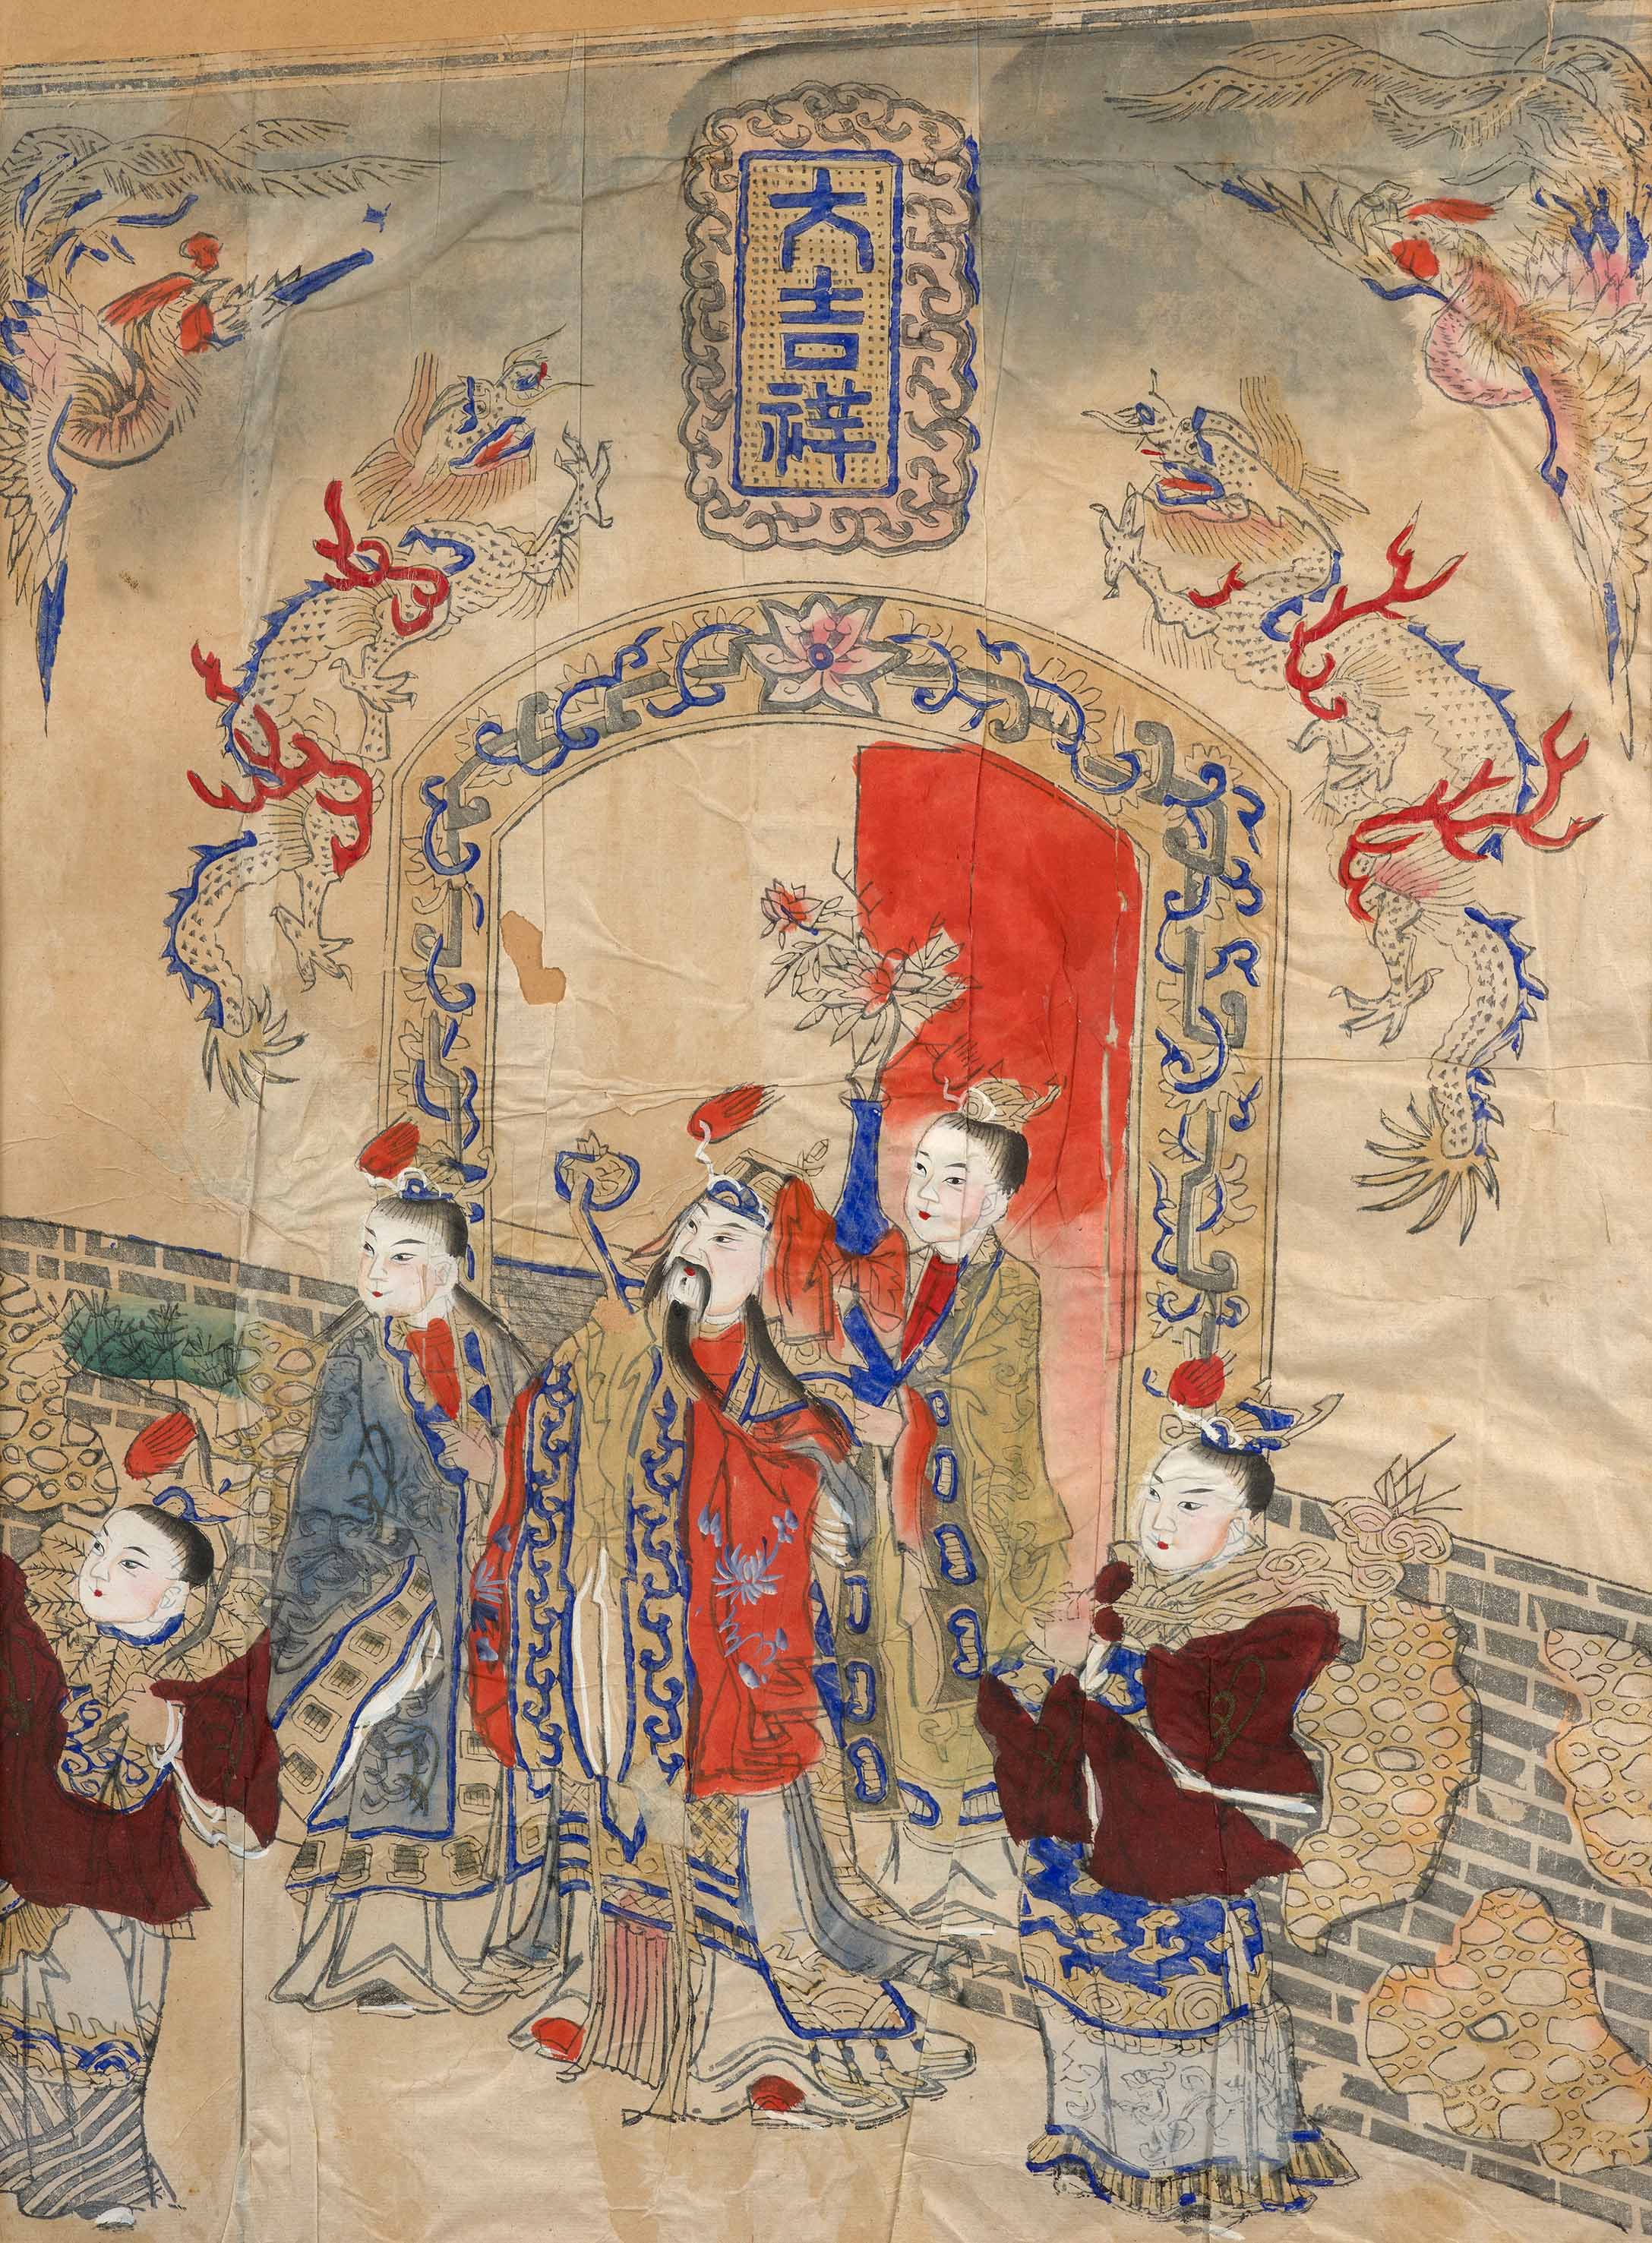 大吉祥